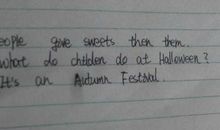 eople give sweets then them.
What do children do at Halloween?
It's an Autumn Festival.